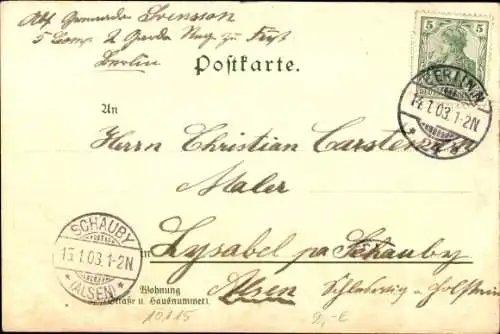 Abs. Grenadier Svensson
5 Comp. 2 Garde Reg. zu Fuß
Berlin
Postkarte.
5
BERLIN
14.1.03.1-2N
An
Herrn Christian Carsten
Maler
in Lysabel pa Schauby
Alsen Schleswig Holstein
SCHAUBY
15.1.03.1-2N.
* (ALSEN) *
Wohnung
(Straße u. Hausnummer)
10115
2,-E